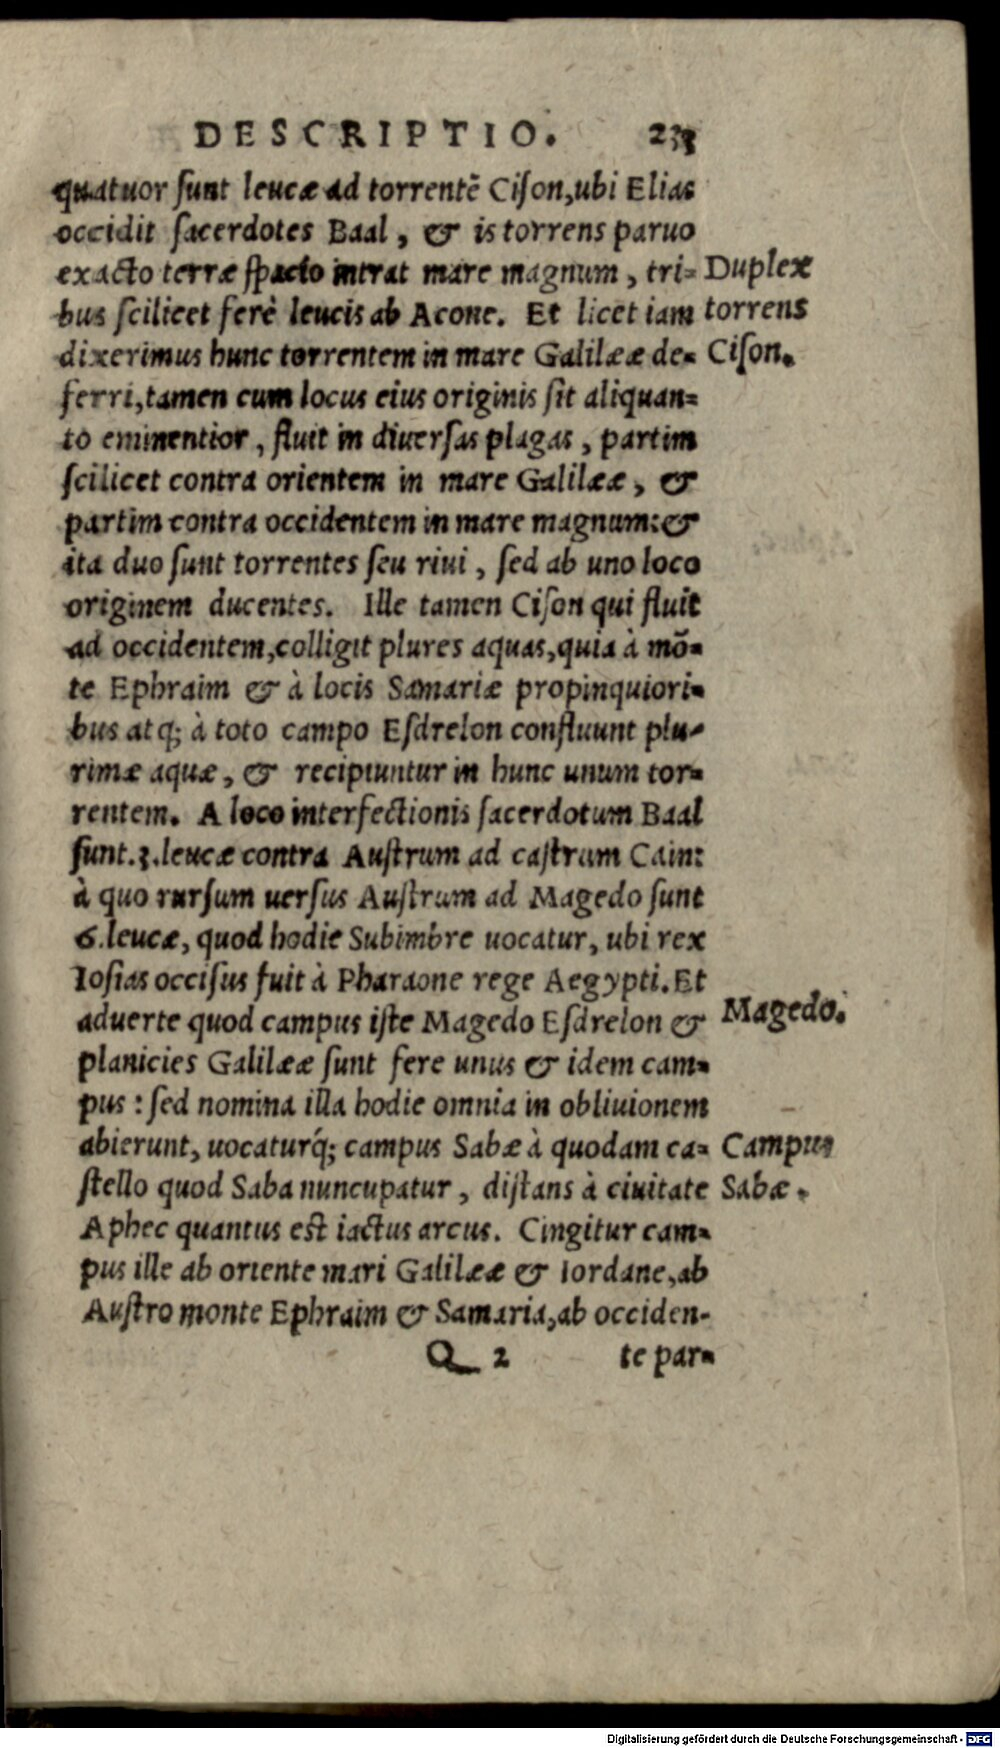 DESCRIPTIO.
quatuor ſunt leucæ ad torrentē Ciſon,ubi Elias
occidit ſacerdotes Baal, & is torrens paruo
exacto terræ ſpacio intrat mare magnum, tri-
Duplex
bus ſcilicet ferè leucis ab Acone. Et licet iam
torrens
dixerimus hunc torrentem in mare Galilææ de-
Ciſon.
ferri,tamen cum locus eius originis ſit aliquan-
to eminentior, fluit in diuerſas plagas, partim
ſcilicet contra orientem in mare Galilææ, &
partim contra occidentem in mare magnum:&
ita duo ſunt torrentes ſeu riui, ſed ab uno loco
originem ducentes. Ille tamen Ciſon qui fluit
ad occidentem,colligit plures aquas,quia à mō-
te Ephraim & à locis Samariæ propinquiori-
bus atq; à toto campo Eſdrelon confluunt plu-
rimæ aquæ, & recipiuntur in hunc unum tor-
rentem. A loco interfectionis ſacerdotum Baal
ſunt.3.leucæ contra Auſtrum ad caſtrum Cain:
à quo rurſum uerſus Auſtrum ad Magedo ſunt
6.leucæ, quod hodie Subimbre uocatur, ubi rex
Ioſias occiſus fuit à Pharaone rege Aegypti.Et
aduerte quod campus iſte Magedo Eſdrelon &
Magedo.
planicies Galilææ ſunt fere unus & idem cam-
pus: ſed nomina illa hodie omnia in obliuionem
abierunt, uocaturq́; campus Sabæ à quodam ca-
Campus
ſtello quod Saba nuncupatur, diſtans à ciuitate
Sabæ.
Aphec quantus eſt iactus arcus. Cingitur cam-
pus ille ab oriente mari Galilææ & Iordane,ab
Auſtro monte Ephraim & Samaria,ab occiden-
Q 2
te par-
Digitalisierung gefördert durch die Deutsche Forschungsgemeinschaft - DFG